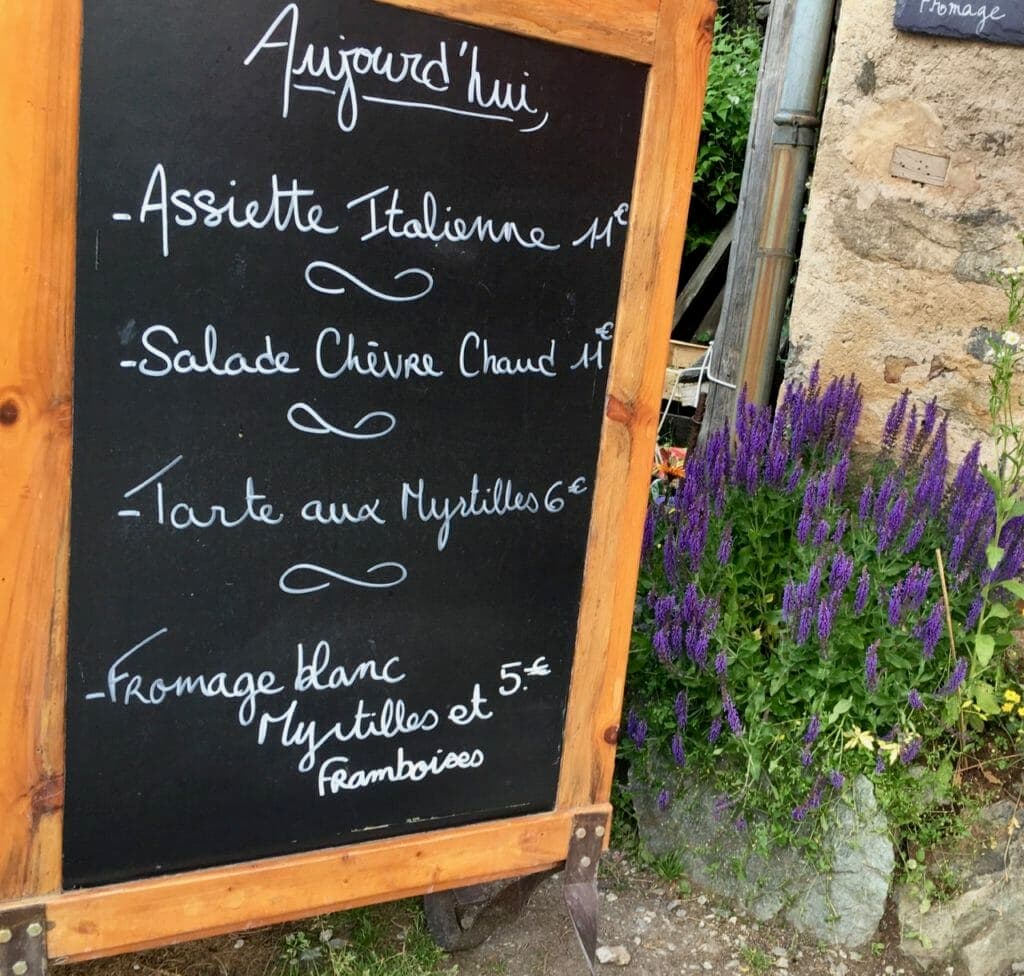 Aujourd'hui,
- Assiette Italienne 11€
- Salade Chèvre Chaud 11€
- Tarte aux Myrtilles 6€
- Fromage blanc
Myrtilles et 5.€
Framboises
Fromage